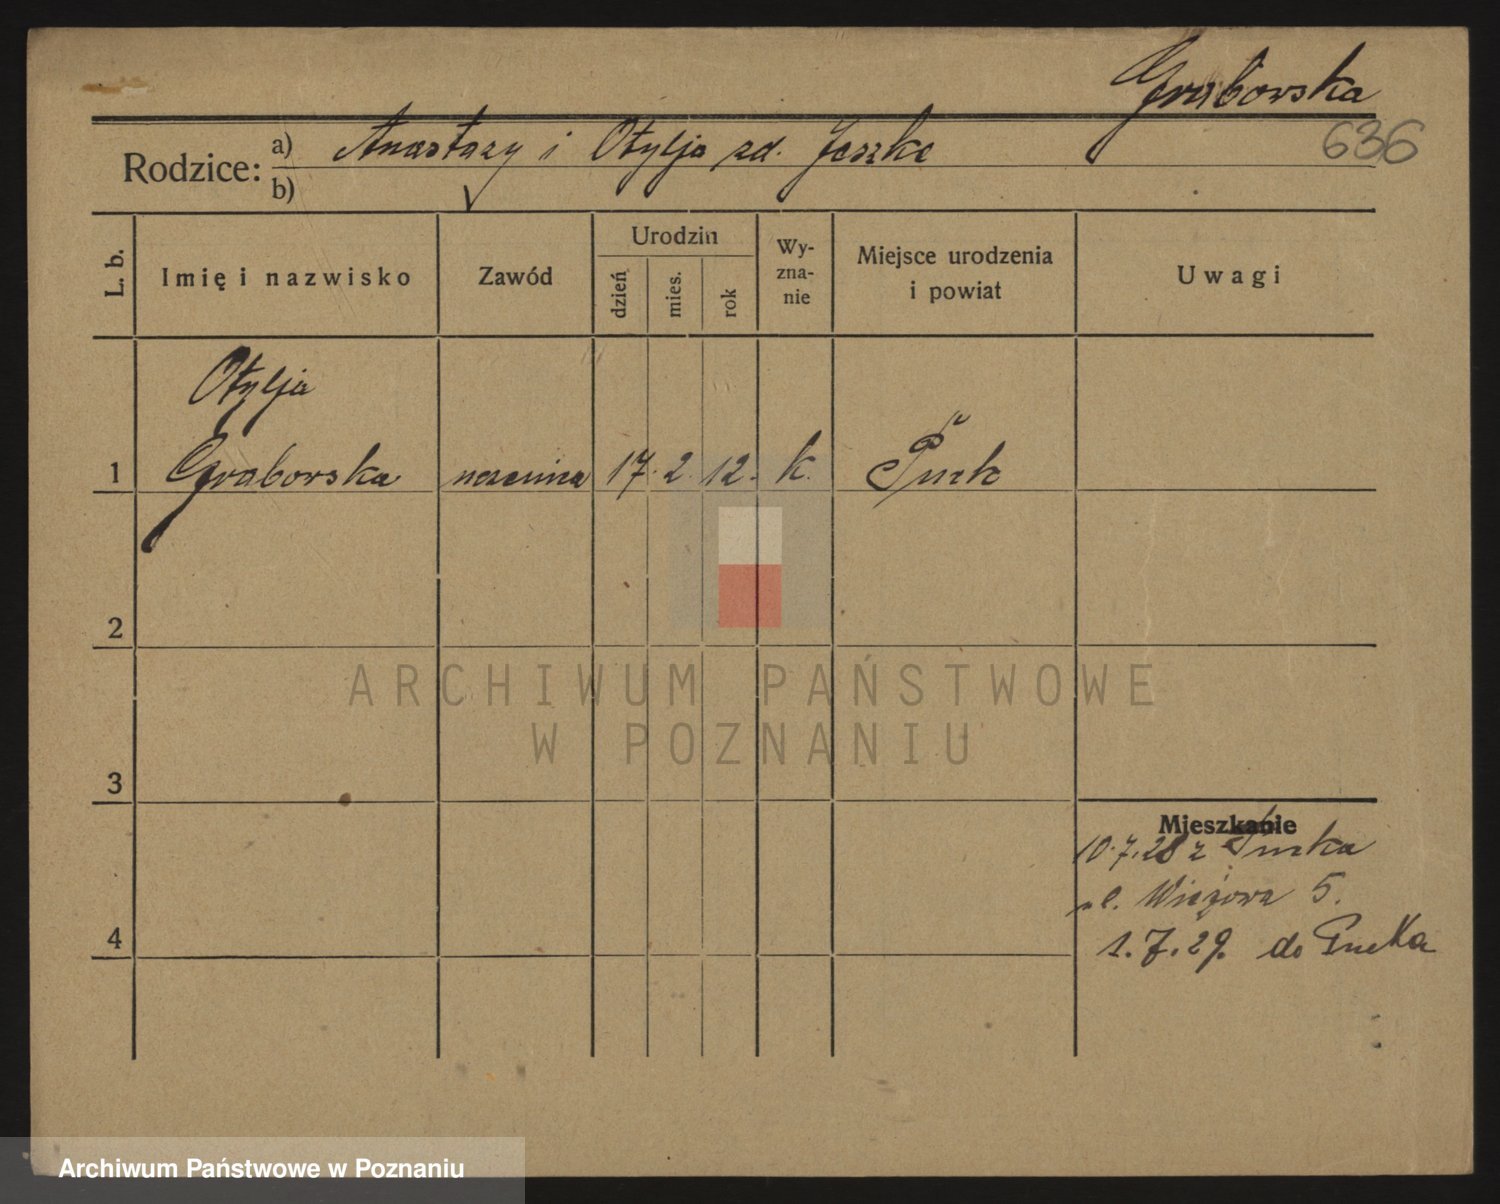 Grabowska
636
Rodzice: a) Anastazy i Otylja zd. Jeszke
b)
L. b.
Imię i nazwisko
Zawód
Urodzin
dzień
mies.
rok
Wy-
zna-
nie
Miejsce urodzenia
i powiat
Uwagi
Otylja
1 Grabowska uczenica 17. 2. 12. k. Puck
2
ARCHIWUM PAŃSTWOWE
W POZNANIU
3
Mieszkanie
10.7.28 z Pucka
ul. Wieżowa 5.
4
1.7.29. do Pucka
Archiwum Państwowe w Poznaniu